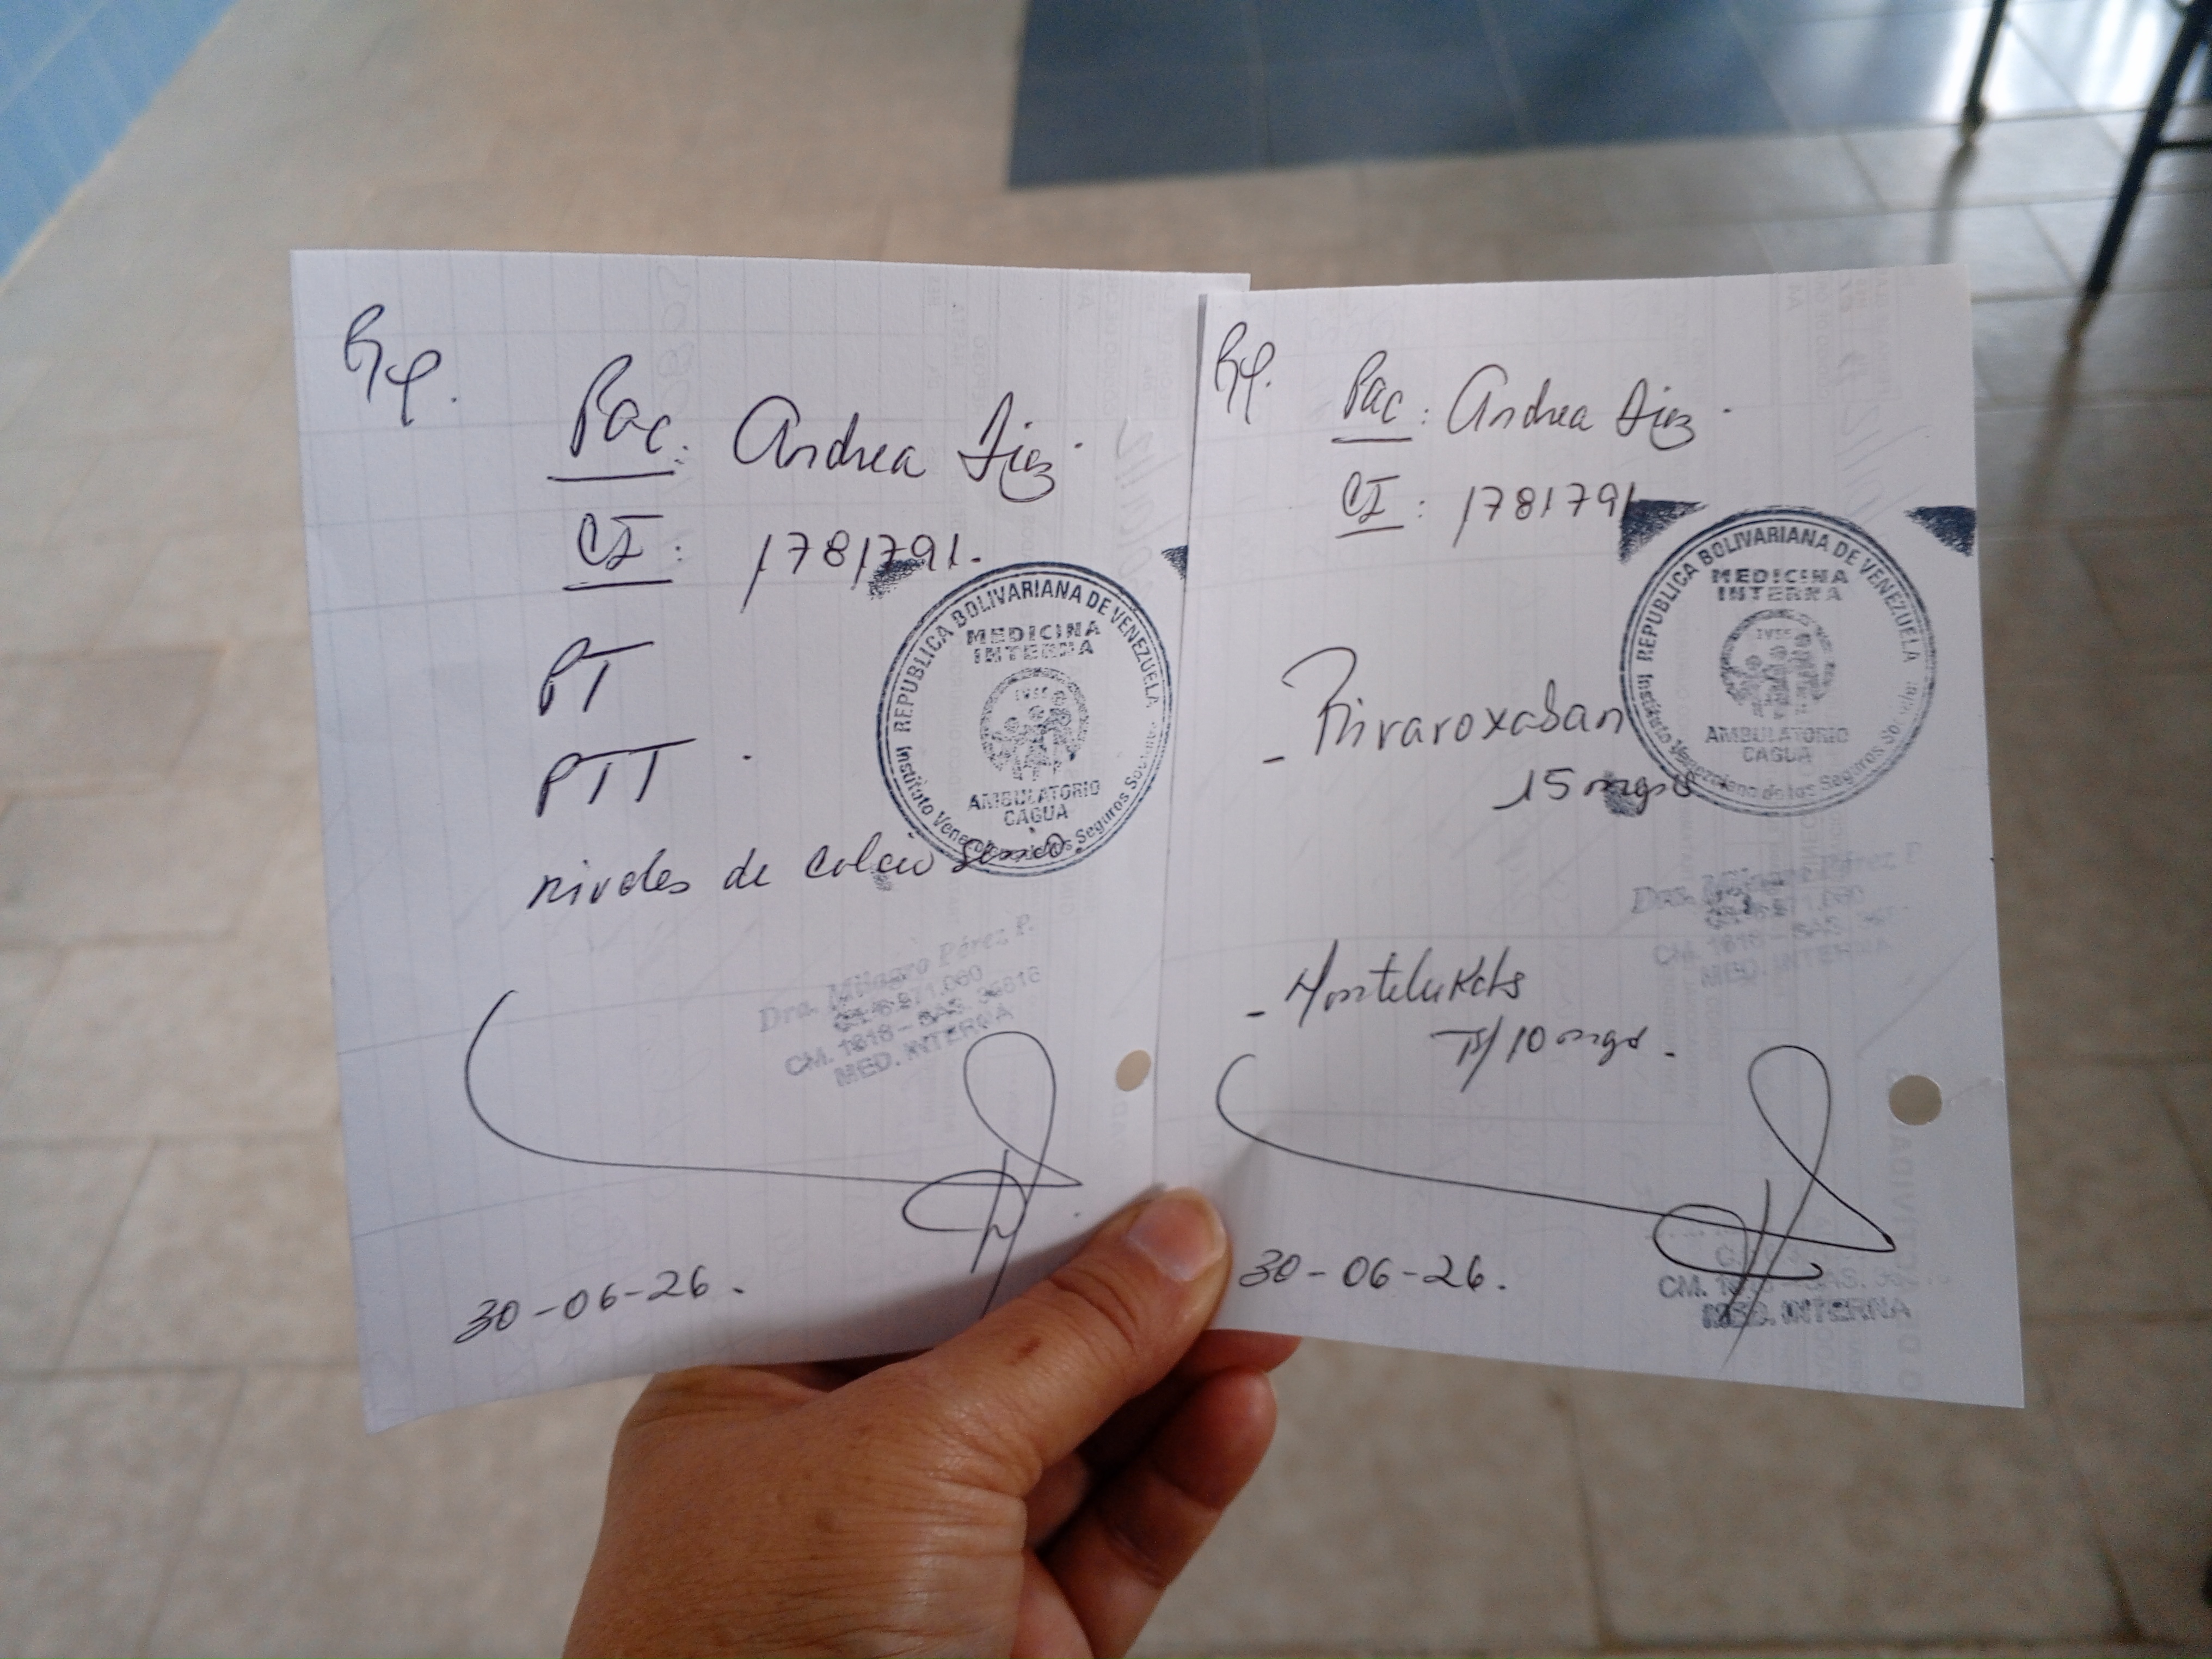 Rp.
Pac: Andrea Diaz.
CI: 1781791.
PT
PTT.
niveles de Calcio Serico.
REPUBLICA BOLIVARIANA DE VENEZUELA
MEDICINA
INTERNA
IVSS
AMBULATORIO
CAGUA
Instituto Venezolano de los Seguros Sociales
Dra. Milagro Pérez P.
CM. 1616 - SAS. 36616
MED. INTERNA
30-06-26.
Rp.
Pac: Andrea Diaz.
CI: 1781791
- Rivaroxaban
15 mgs
REPUBLICA BOLIVARIANA DE VENEZUELA
MEDICINA
INTERNA
IVSS
AMBULATORIO
CAGUA
Instituto Venezolano de los Seguros Sociales
Dra. Milagro Pérez P.
MED. INTERNA
- Montelukats
TB/10 mgs.
30-06-26.
MED. INTERNA